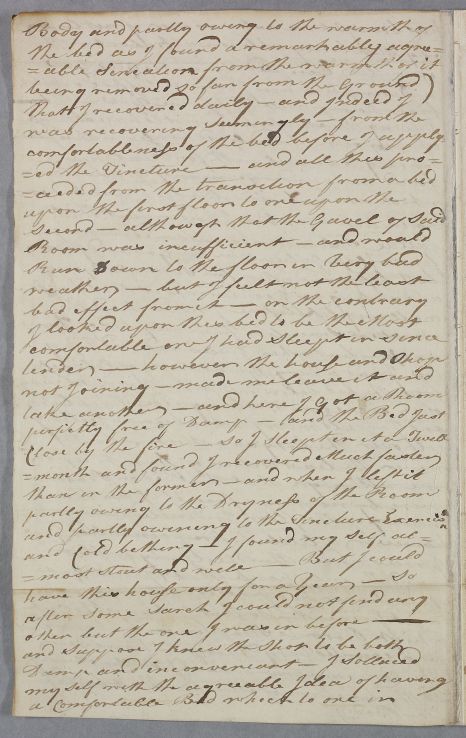 Body and partly owing to the warmth of
the bed as I found a remarkably agree=
=able Sensation from the warmth of it
being removed so far from the Ground)
that I recovered daily — and Indeed I
was recovering seemingly — from the
comfortableness of the bed before I apply
=ed the Tincture — and all this pro=
=ceeded from the transition from a bed
upon the first floor to one upon the
Second — although that the Gavel of Said
Room was insufficient — and would
Run Down to the floor in Very bad
weather — but I felt not the least
bad effect from it — on the contrary
I looked upon this bed to be the Most
comfortable one I had Sleept in since
tender — however the house and Shop
not Joining — made me leave it and
take another — and here I Got a Room
perfictly free of Damp — and the Bed Just
Close by the fire — So I Sleept in it a Twelt
=month and found I recovered Much faster
than in the former — and when I left it
partly owing to the Dryness of the Room
and partly owening to the Tincture Exercise
and Cold bething — I found my self al=
=most stout and wele — But I could
have this house only for a Year — So
after some Sarch I could not find any
other but the one I was in before —
and suppose I knew the Shop to be both
Damp and inconveniant — I Sollaced
my self with the agreeable Idea of having
a Comfortable Bed which to one in